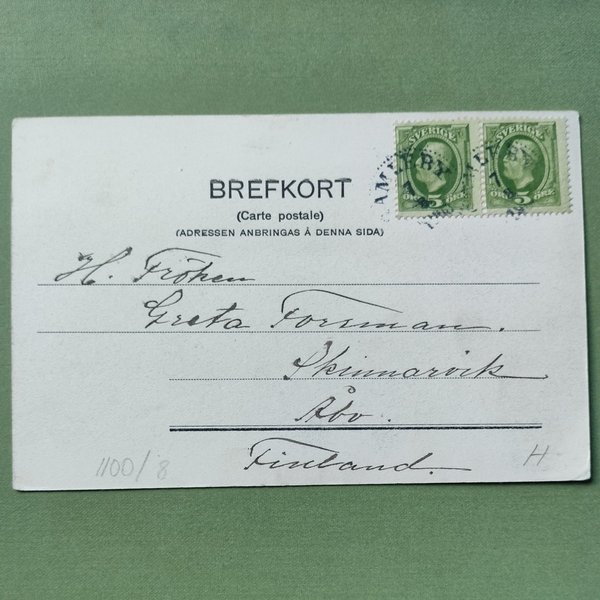 SVERIGE SVERIGE
5 5
ÖRE ÖRE
GAMLEBY
BREFKORT
(Carte postale)
(ADRESSEN ANBRINGAS Å DENNA SIDA)
H. Fröken
Greta Forsman.
Skinnarvik
Åbo.
Finland.
1100/8
H